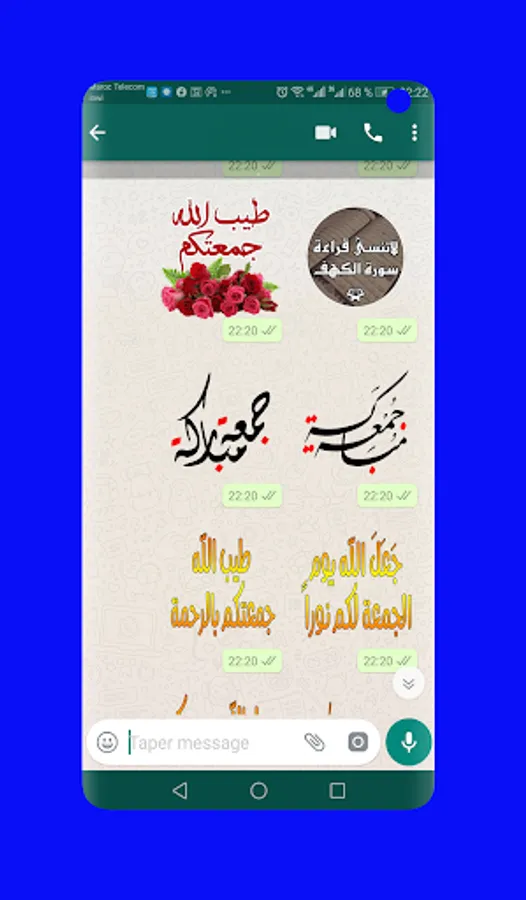 Maroc Telecom
inwi
68 %
22:22
22:20
22:20
طيب الله
جمعتكم
لاتنسى قراءة
سورة الكهف
22:20
22:20
جمعة
مباركة
جمعة
مباركة
22:20
22:20
طيب الله
جمعتكم بالرحمة
جَعَلَ الله يوم
الجمعة لكم نوراً
22:20
22:20
Taper message